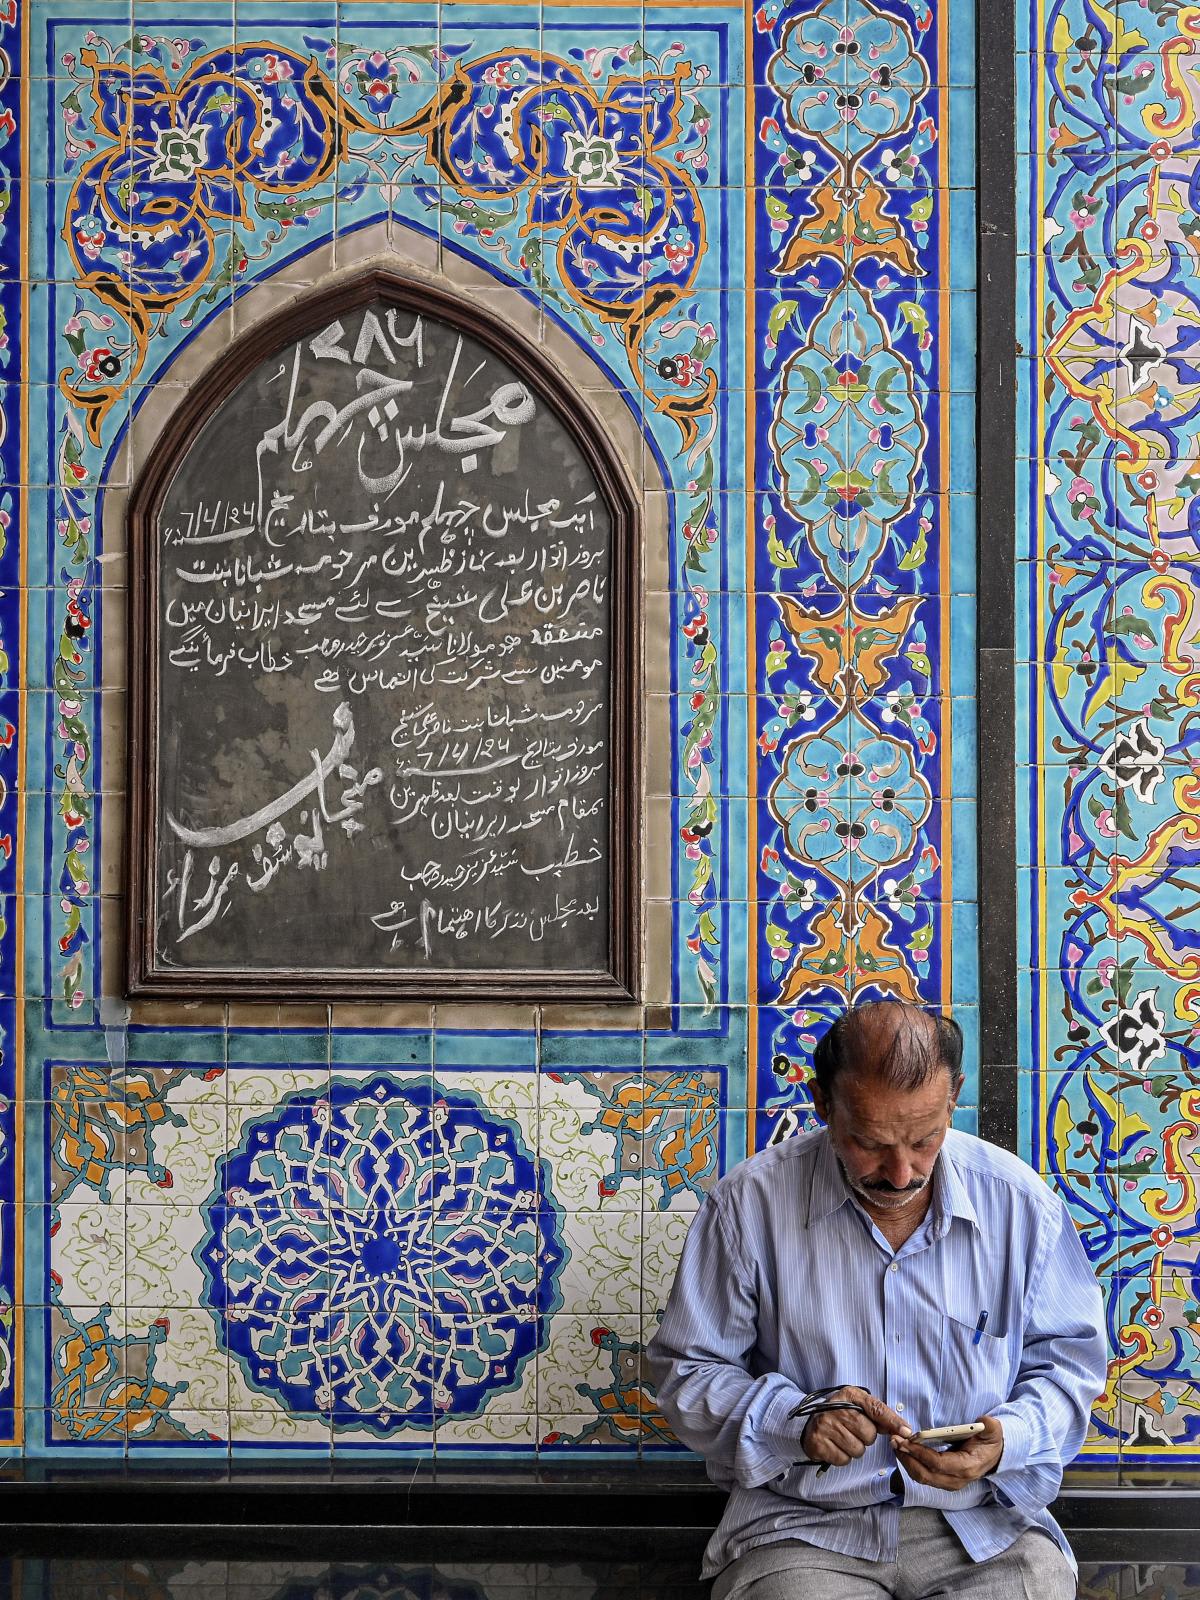 ۷۸۶
مجلس چہلم
ایک مجلس چہلم مورخہ بتاریخ 7/4/24ء
بروز اتوار بعد نماز ظہرین مرحومہ شبانا بنت
ناصر بن علی شیخ کے لئے مسجد ایرانیان میں
منعقد ہو مولانا سیّد عزیز حیدر صاحب خطاب فرمائینگے
مومنین سے شرکت کی التماس ہے
مرحومہ شبانا بنت ناصر علی شیخ
مورخہ بتاریخ 7/4/24ء
بروز اتوار بوقت بعد ظہرین
بمقام مسجد ایرانیان
خطیب سیّد عزیز حیدر صاحب
بعد مجلس نذر کا اہتمام ہے
منجانب
یوسف مرزا